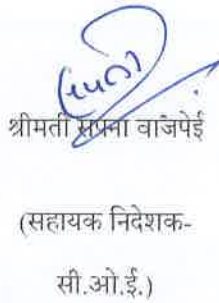 श्रीमती सपना वाजपेई
(सहायक निदेशक-
सी.ओ.ई.)